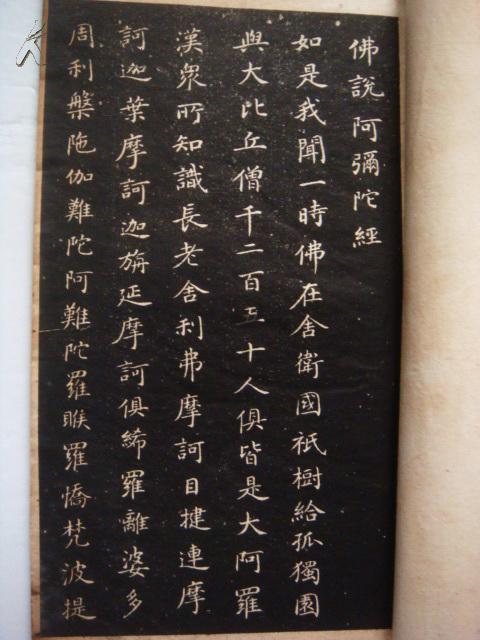 佛說阿彌陀經
如是我聞一時佛在舍衛國祇樹給孤獨園
與大比丘僧千二百五十人俱皆是大阿羅
漢眾所知識長老舍利弗摩訶目揵連摩
訶迦葉摩訶迦旃延摩訶俱絺羅離婆多
周利槃陁伽難陀阿難陀羅睺羅憍梵波提